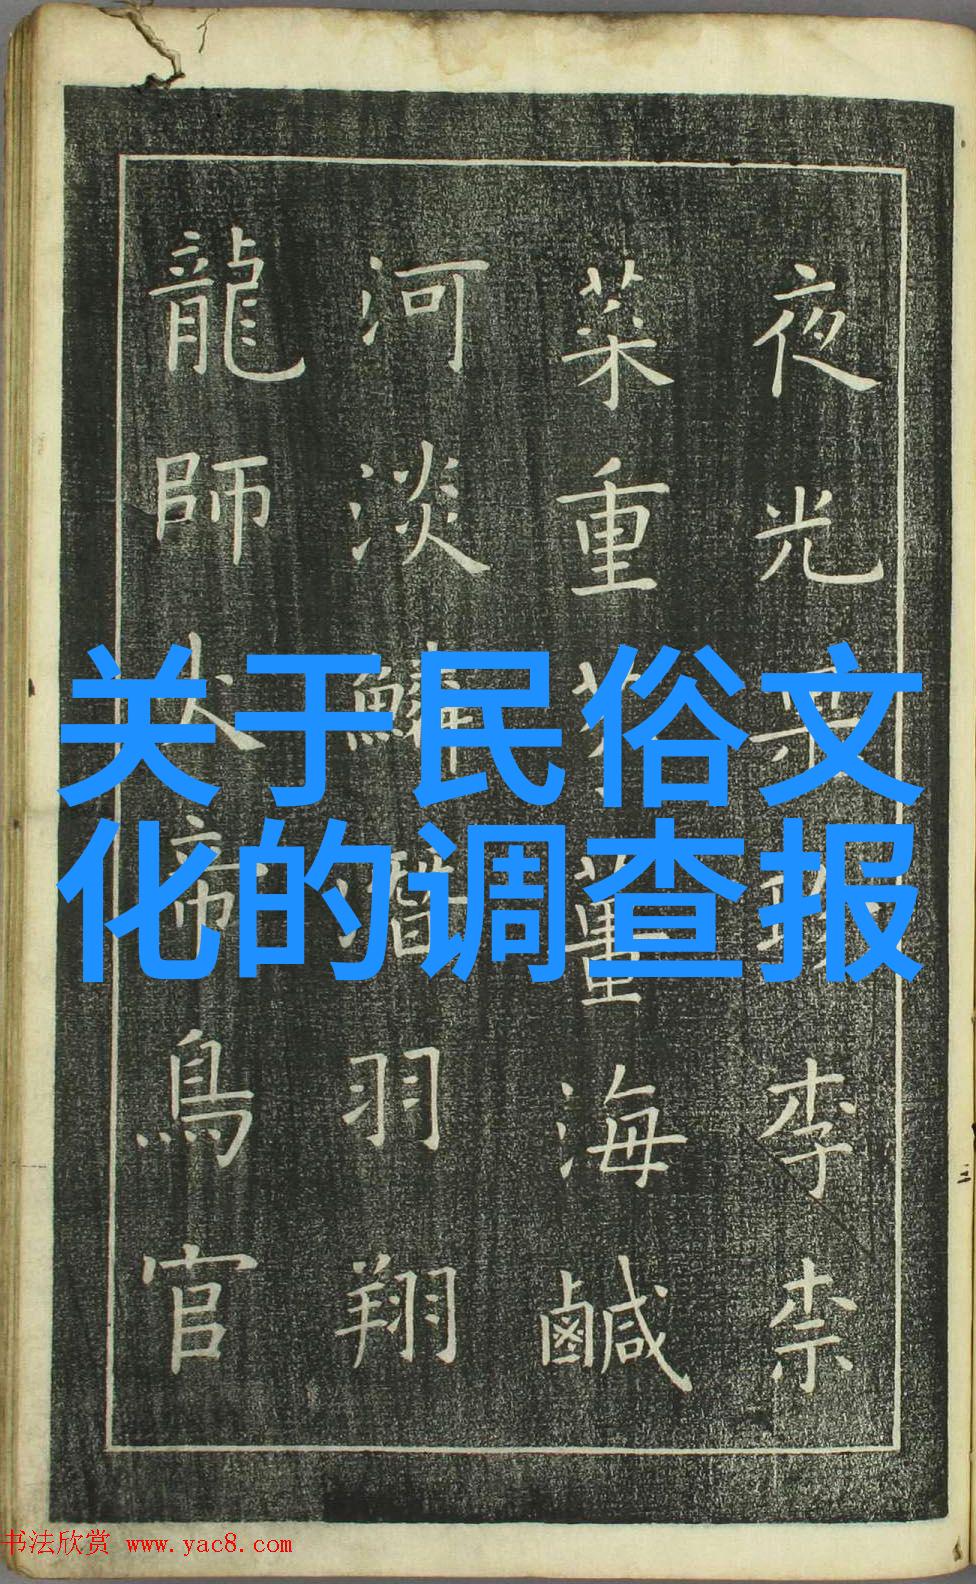 夜光果珍李柰
菜重芥薑海鹹
河淡鱗潛羽翔
龍師火帝鳥官
关于民俗文
化的调查报
书法欣赏 www.yac8.com